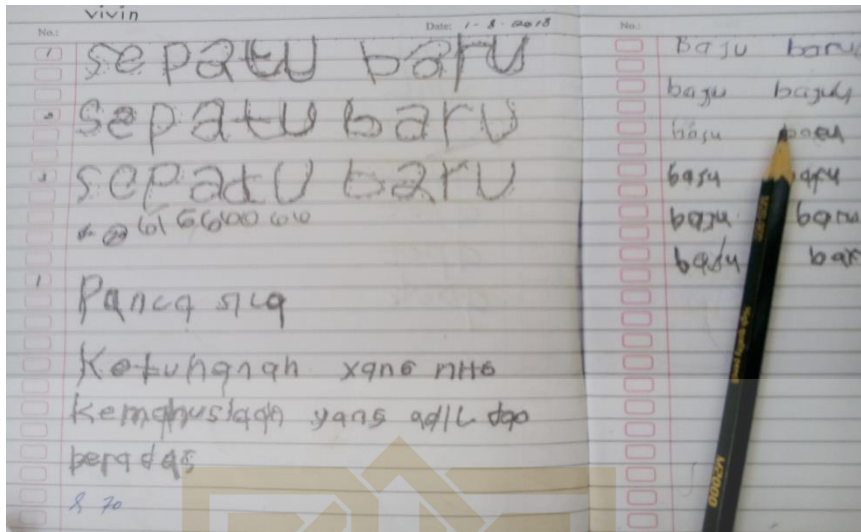 vivin
No.: Date: 1-8-2018
1 sepatu baru
2 sepatu baru
3 sepatu baru
1 Panca sila
Ketuhanan yang
Kemanusiaan yang adil dan
beradab
70
No.:
Baju baru
baju
baju
baju
baju baru
baju
M2000